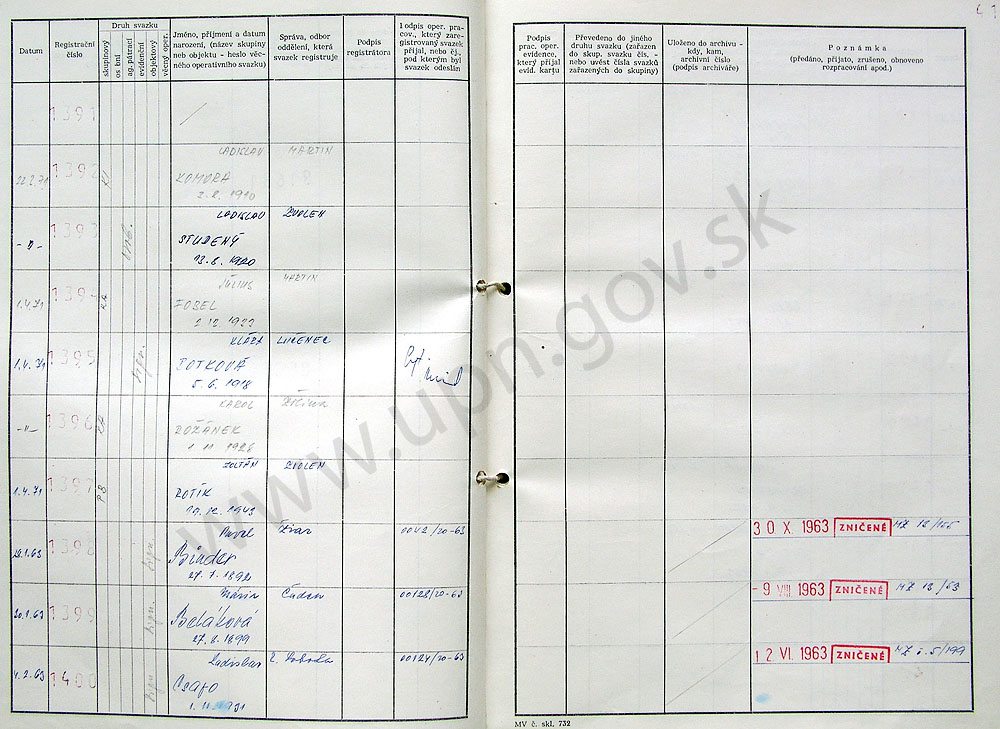 Datum
Registrační číslo
Druh svazku
skupinový
osobní
ag. pátrací
evidenční
objektový
věcný oper.
Jméno, příjmení a datum
narození, (název skupiny
neb objektu - heslo věc-
ného operativního svazku)
Správa, odbor
oddělení, která
svazek registruje
Podpis
registrátora
Podpis oper. pra-
cov., který zare-
gistrovaný svazek
přijal, nebo čj.,
pod kterým byl
svazek odeslán
1391
LADISLAV MARTIN
22.2.71 1392 KOMORA
2.8.1910
LADISLAV ZVOLEN
-"- 1393 STUDENÝ
13.8.1920
JÚLIUS MARTIN
1.4.71 139
2.12.1923
KLÁRA LUČENEC
1.4.71 1395 FOTKOVÁ
5.6.1918
KAROL Žilina
-"- 1396 ROŽÁNEK
1.11.1926
ZOLTÁN ZVOLEN
1.4.71 1397 PB ROTÍK
Pavel Žvar 0042/20-63
1398 Binder
27.7.1892
Mária Čadca 00128/20-63
1399 Beláková
27.8.1899
Ladislav 00124/20-63
4.2.63 1400 Csajo
1.11.1931
Podpis
prac. oper.
evidence,
který přijal
evid. kartu
Převedeno do jiného
druhu svazku (zařazen
do skup. svazku čís. -
nebo uvést čísla svazků
zařazených do skupiny)
Uloženo do archivu -
kdy, kam,
archivní číslo
(podpis archiváře)
Poznámka
(předáno, přijato, zrušeno, obnoveno
rozpracování apod.)
30 X. 1963 ZNIČENÉ
- 9 VIII 1963 ZNIČENÉ MZ 18/63
12 VI. 1963 ZNIČENÉ
MV č. skl. 732
www.upn.gov.sk